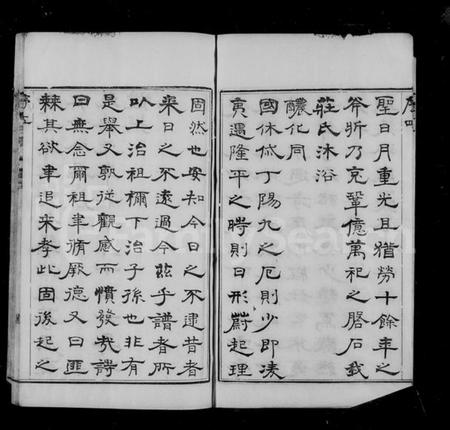 聖日月重光且猶勞十餘年之
斧折乃克鞏億萬祀之磐石我
莊氏沐浴
醲化同
國休戚丁陽九之厄則少即凌
夷遇隆平之時則日形蔚起理
固然也安知今日之不逮昔者
來日之不遠過今茲乎譜者所
以上治祖禰下治子孫也非有
是舉又孰從觀感而憤發哉詩
曰無念爾祖聿脩厥德又曰匪
棘其欲聿追來孝此固後起之